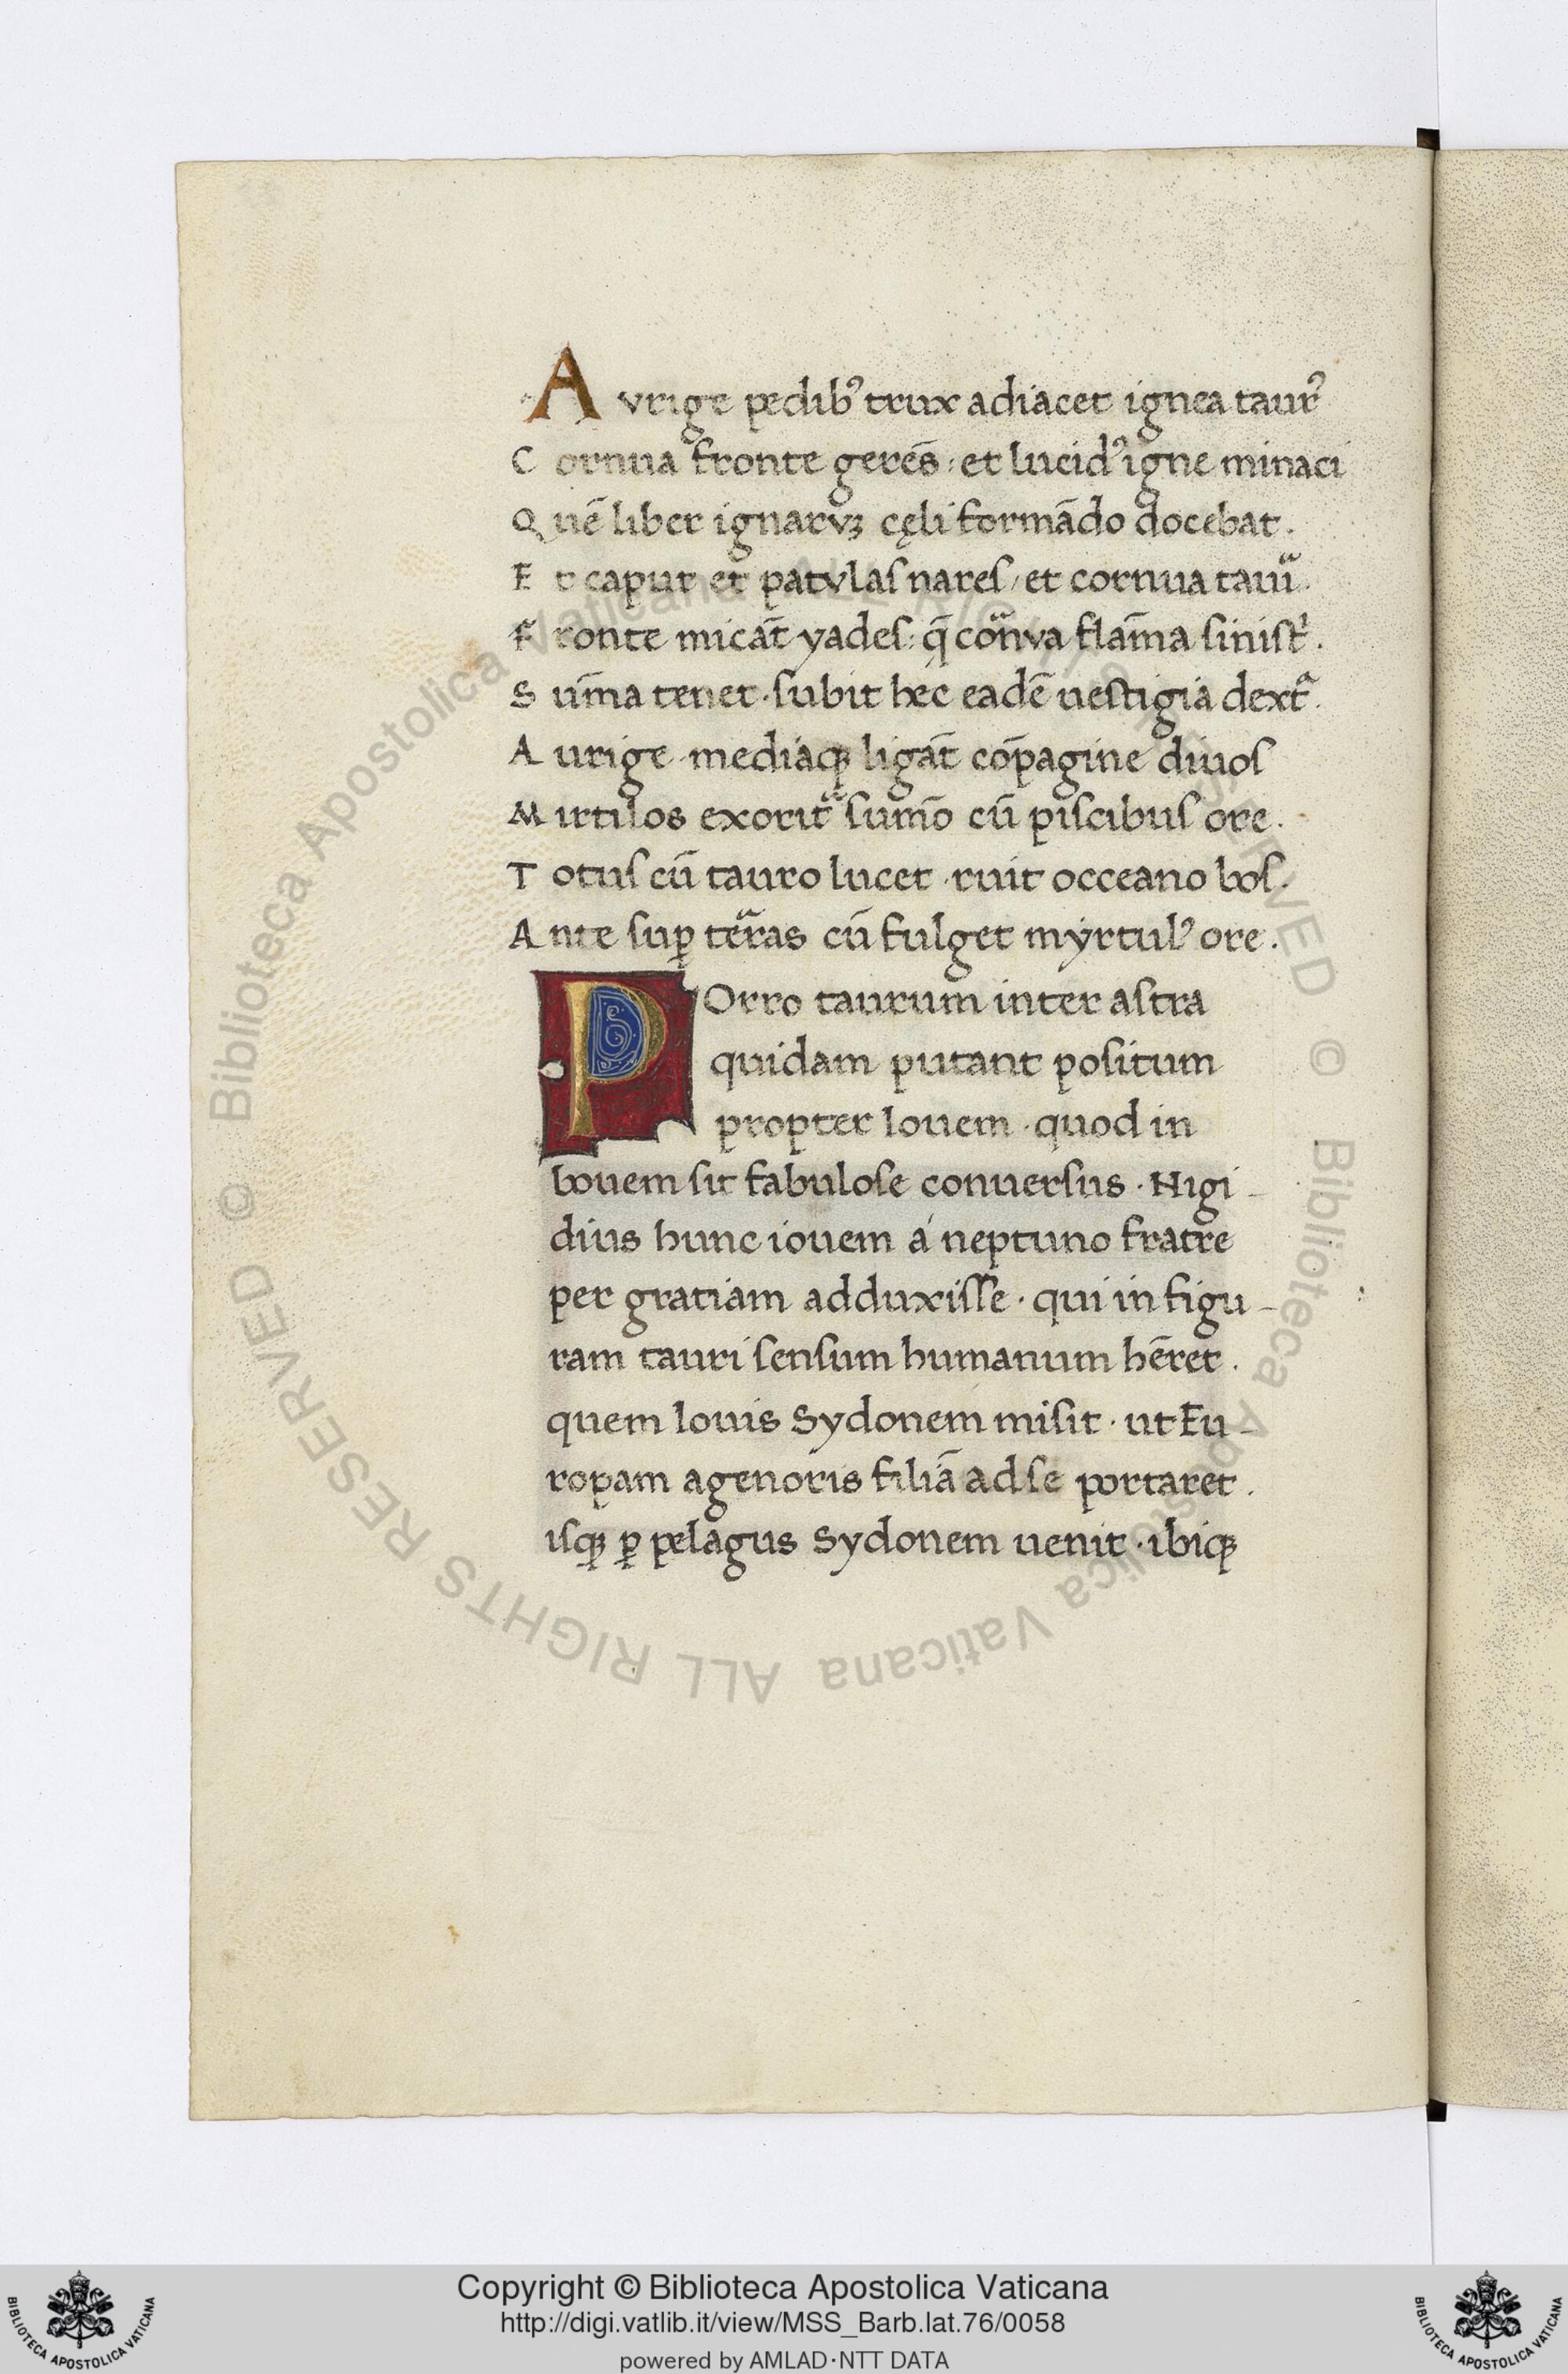 Aurige pedibꝰ trux adiacet ignea taurꝰ
Cornua fronte gerēs: et lucidꝰ igne minaci
Quē liber ignarvꝫ cęli formādo docebat.
Et caput et patvlaſ nareſ, et cornua tauͣ.
Fronte micāt yadeſ: q̄ coͣnva flām̄a siniſtͥ.
Sūma tenet. subit hec eadē ueſtigia dextͣ.
Aurige. mediaqꝫ ligāt cōpagine diuoſ
Mirtilos exoritͣ ſum̄o cū piſcibuſ ore.
Totuſ cū tauro lucet. ruit occeano boſ.
Ante suꝑ teͣras cū fulget myrtulꝰ ore.
POrro taurum inter aſtra
quidam putant poſitum
propter Iouem. quod in
bouem ſit fabuloſe conuerſus. Nigi-
dius hunc iouem a neptuno fratre
per gratiam adduxiſſe. qui in figu-
ram tauri ſenſum humanum hēret.
quem Iouis Sydonem miſit. ut Eu-
ropam agenoris filiā ad ſe portaret.
iſqꝫ ꝑ pelagus Sydonem uenit. ibiqꝫ
© Biblioteca Apostolica Vaticana ALL RIGHTS RESERVED © Biblioteca Apostolica Vaticana ALL RIGHTS RESERVED
Copyright © Biblioteca Apostolica Vaticana
http://digi.vatlib.it/view/MSS_Barb.lat.76/0058
powered by AMLAD·NTT DATA
BIBLIOTECA APOSTOLICA VATICANA
BIBLIOTECA APOSTOLICA VATICANA